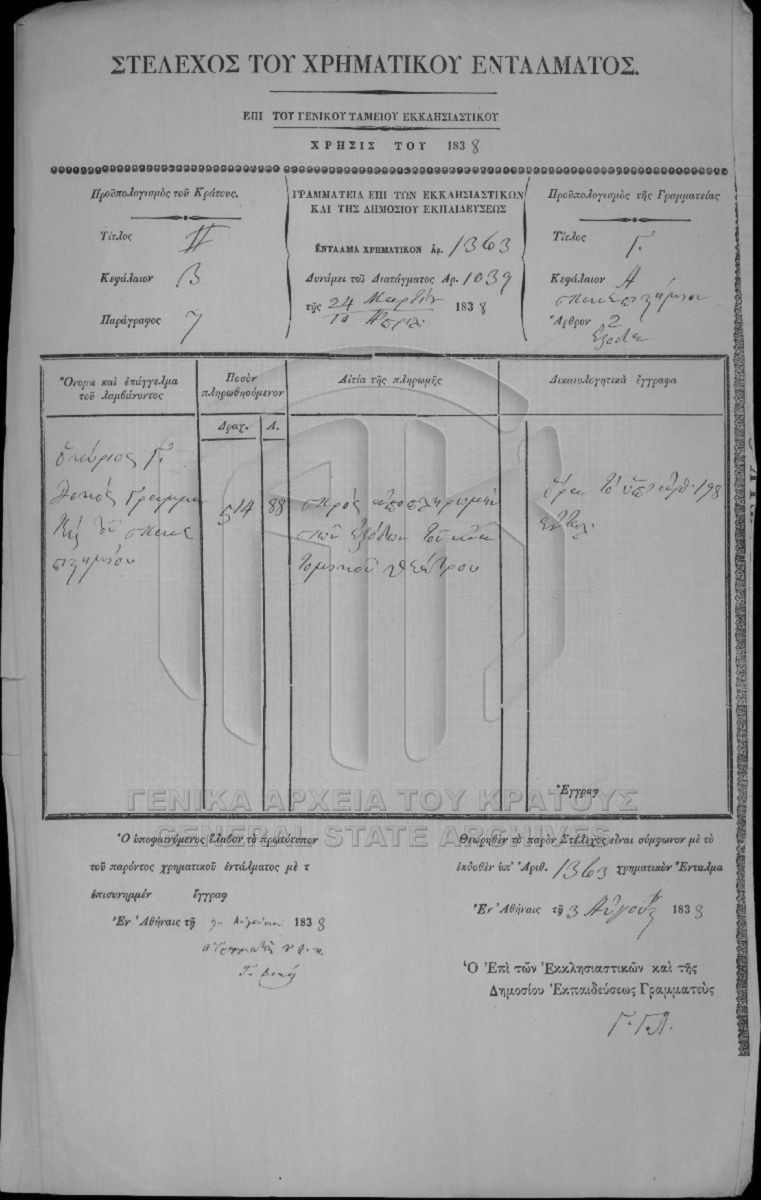 ΣΤΕΛΕΧΟΣ ΤΟΥ ΧΡΗΜΑΤΙΚΟΥ ΕΝΤΑΛΜΑΤΟΣ.
ΕΠΙ ΤΟΥ ΓΕΝΙΚΟΥ ΤΑΜΕΙΟΥ ΕΚΚΛΗΣΙΑΣΤΙΚΟΥ
ΧΡΗΣΙΣ ΤΟΥ 1838
Προϋπολογισμὸς τοῦ Κράτους.
Τίτλος II
Κεφάλαιον Β
Παράγραφος 7
ΓΡΑΜΜΑΤΕΙΑ ΕΠΙ ΤΩΝ ΕΚΚΛΗΣΙΑΣΤΙΚΩΝ
ΚΑΙ ΤΗΣ ΔΗΜΟΣΙΟΥ ΕΚΠΑΙΔΕΥΣΕΩΣ
ΕΝΤΑΛΜΑ ΧΡΗΜΑΤΙΚΟΝ Ἀρ. 1363
Δυνάμει τοῦ Διατάγματος Ἀρ. 1039
τῆς 24 Μαρτίου 1838
Προϋπολογισμὸς τῆς Γραμματείας
Τίτλος Γ.
Κεφάλαιον Α
Ἄρθρον 2
Ἔξοδα
Ὄνομα καὶ ἐπάγγελμα
τοῦ λαμβάνοντος
Ποσὸν
πληρωθησόμενον
Αἰτία τῆς πληρωμῆς
Δικαιολογητικὰ ἔγγραφα
Δραχ. Λ.
ὁ κύριος Γ.
514 88
πρὸς ἀποπλήρωμὴν
τῶν ἐξόδων τοῦ ἀνα
τομικοῦ θεάτρου
198
Ἔγγραφ
ΓΕΝΙΚΑ ΑΡΧΕΙΑ ΤΟΥ ΚΡΑΤΟΥΣ
GENERAL STATE ARCHIVES
Ὁ ὑποφαινόμενος ἔλαβον τὸ πρωτότυπον
τοῦ παρόντος χρηματικοῦ ἐντάλματος μὲ τ
ἐπισυνημμέν ἔγγραφ
Ἐν Ἀθήναις τῇ Αὐγούστου 1838
Θεωρηθὲν τὸ παρὸν Στέλεχος εἶναι σύμφωνον μὲ τὸ
ἐκδοθὲν ὑπ' Ἀριθ. 1363 χρηματικὸν Ἔνταλμα
Ἐν Ἀθήναις τῇ 3 Αὐγούστ 1838
Ὁ Ἐπὶ τῶν Ἐκκλησιαστικῶν καὶ τῆς
Δημοσίου Ἐκπαιδεύσεως Γραμματεὺς
Γ. Γ.Λ.